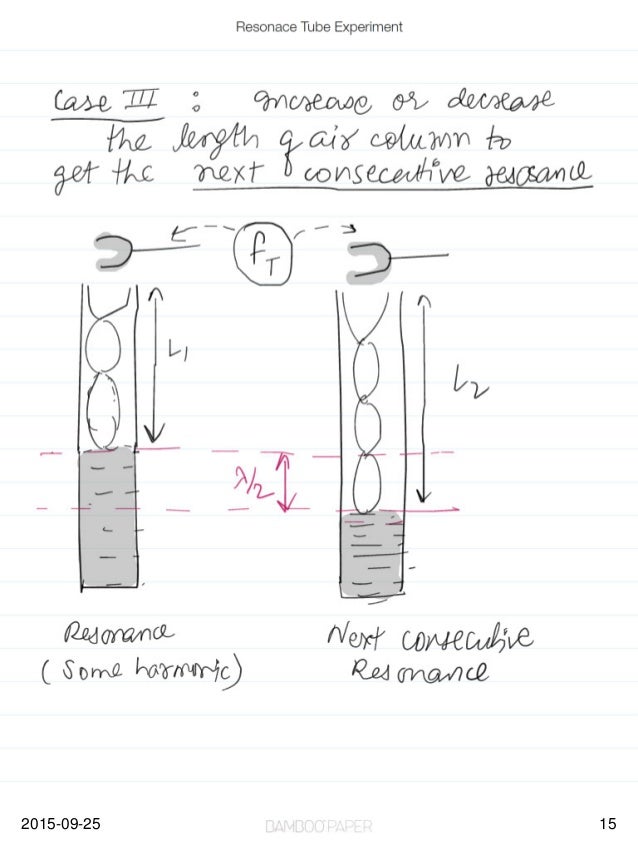 Resonace Tube Experiment
Case III : Increase or decrease
the length of air column to
get the next consecutive resosance
fT
L1
L2
λ/2
Resonance
(Some harmonic)
Next consecutive
Resonance
2015-09-25
BAMBOO PAPER
15